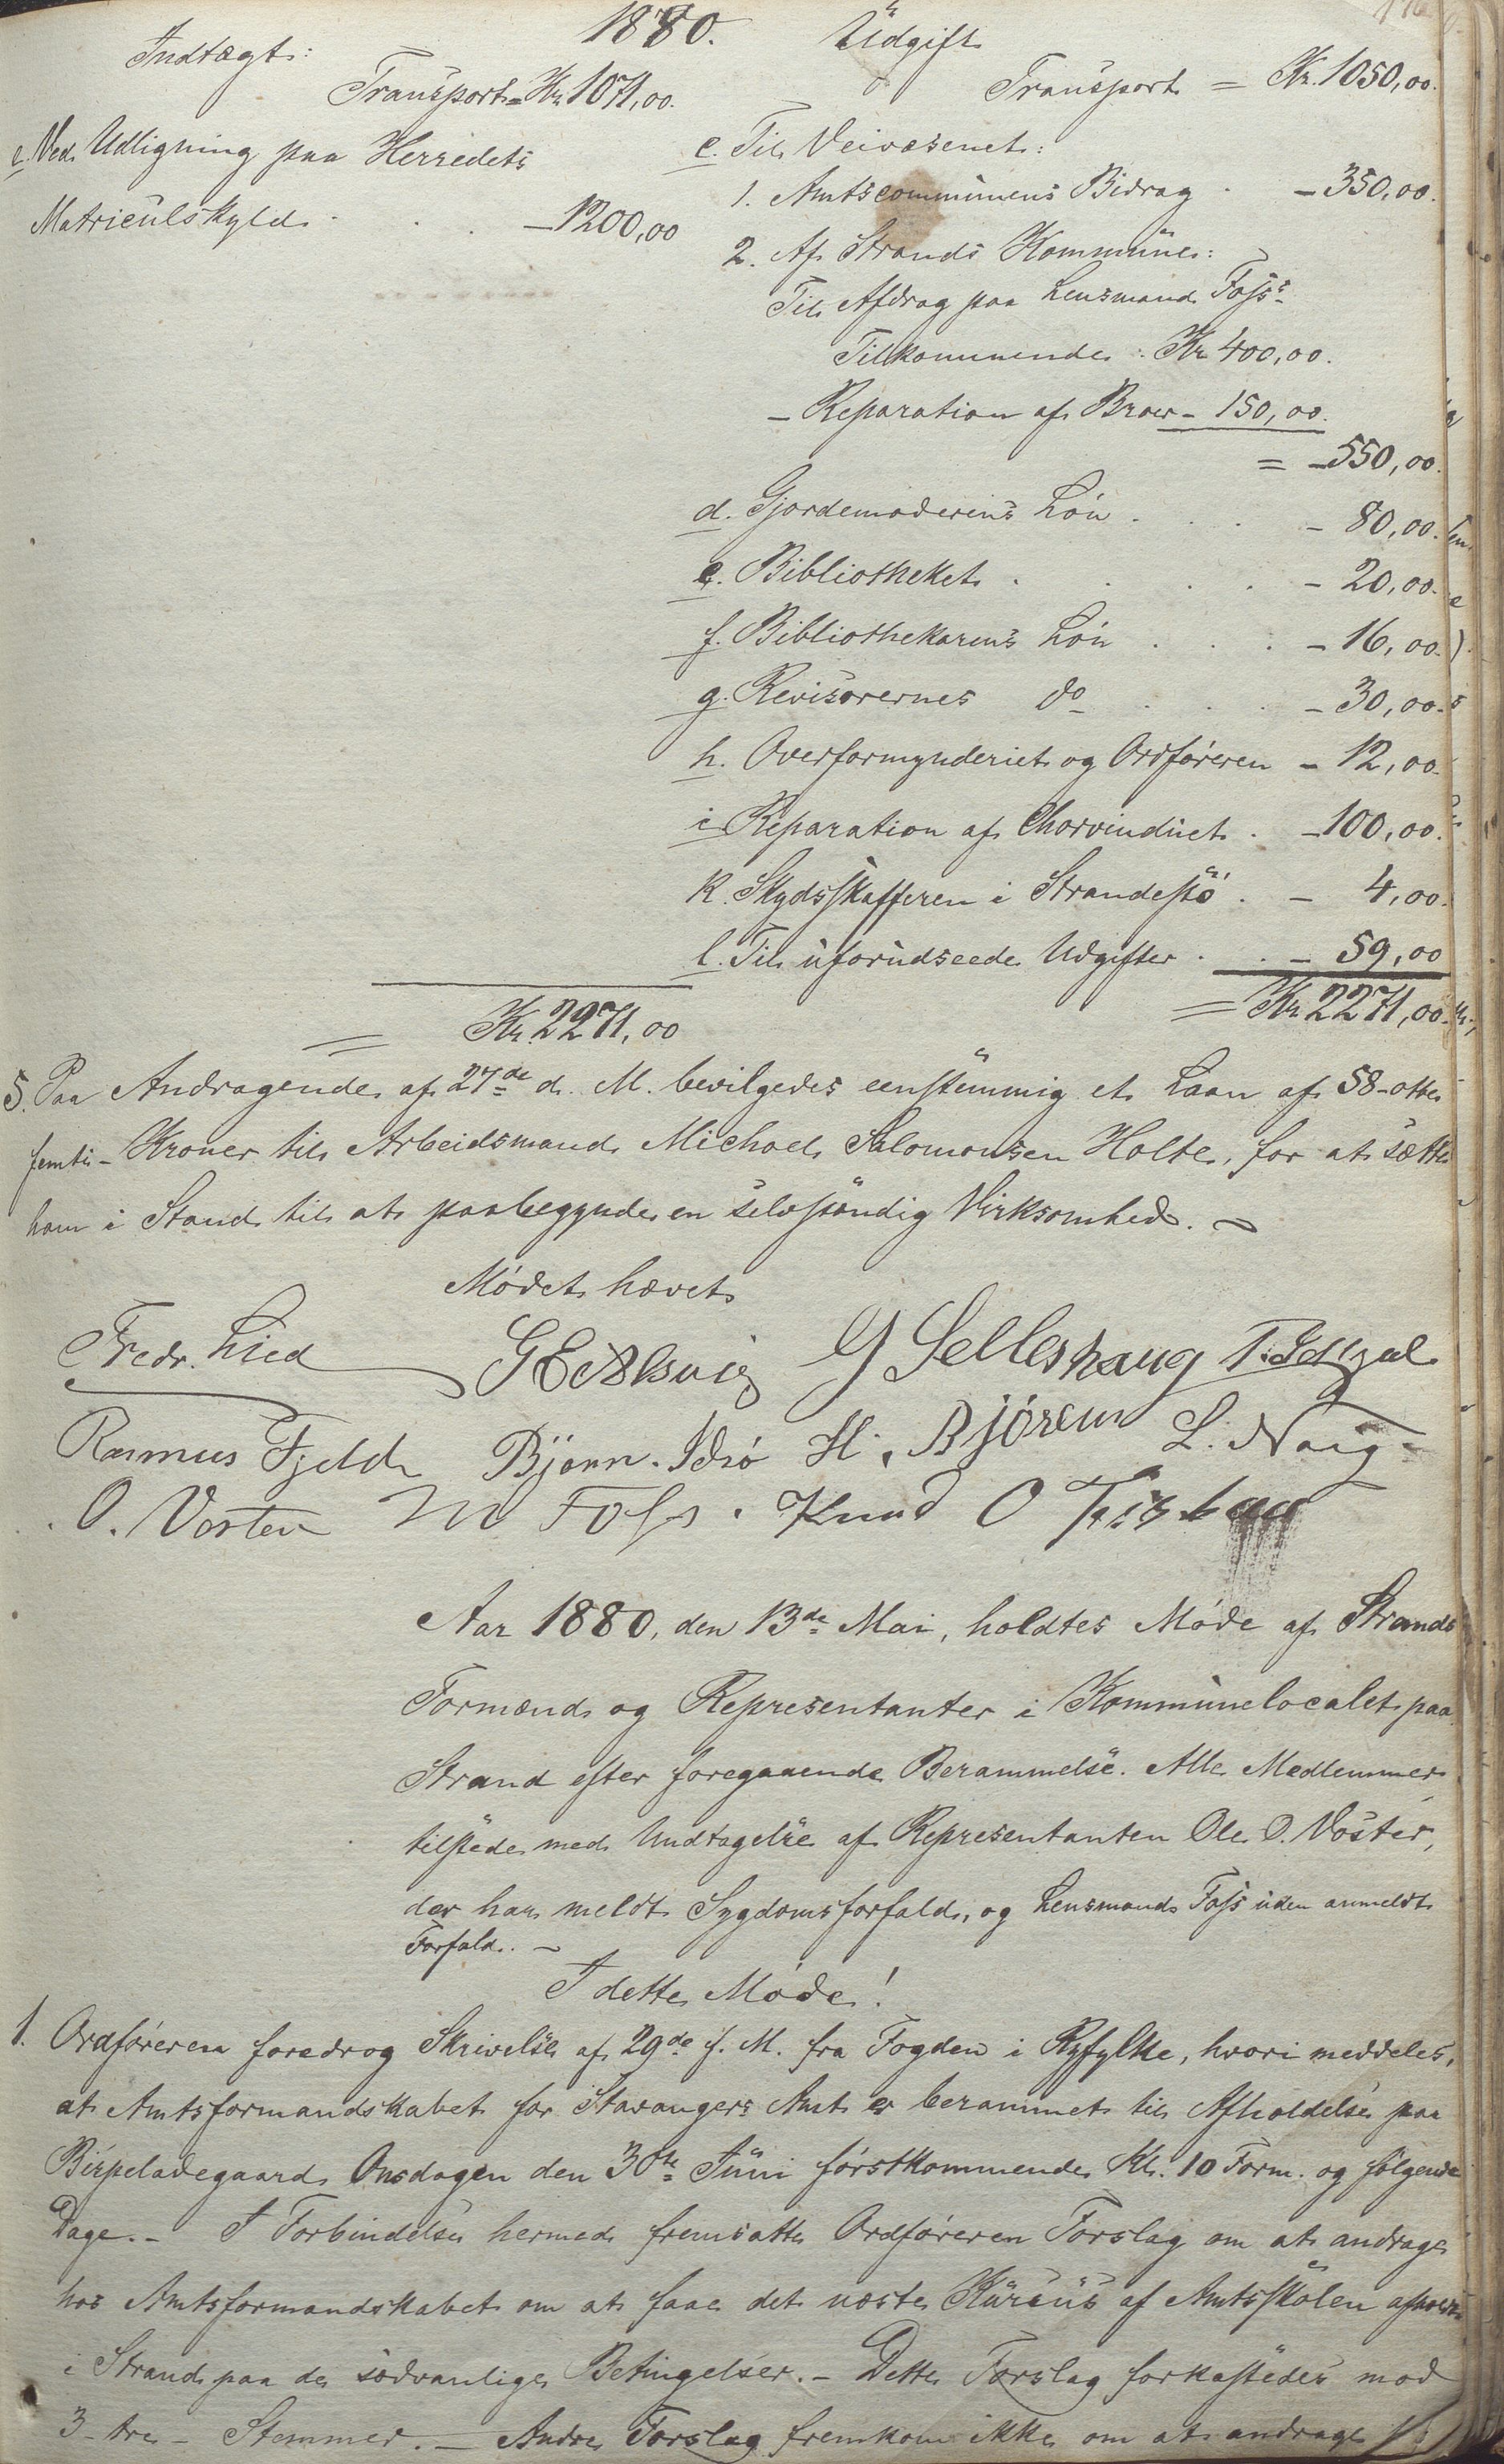 1880.
Indtægt:
Transport = Kr. 1071,00.
c. Ved Udligning paa Herredets
Matriculskyld . . . – 1200,00
= Kr. 2271,00
Udgift
Transport = Kr. 1050,00.
c. Til Veivæsenet:
1. Amtscommunens Bidrag . – 350,00.
2. Af Strands Kommune:
Til Afdrag paa Lensmand Foss's
Tilkommende: Kr. 400,00.
– Reparation af Broer – 150,00.
= – 550,00.
d. Gjordemoderens Løn . . . – 80,00.
e. Bibliotheket . . . . – 20,00.
f. Bibliothekarens Løn . . . – 16,00.
g. Revisorernes do . . . – 30,00.
h. Overformynderiet og Ordføreren – 12,00.
i. Reparation af Chorvinduet . – 100,00.
k. Skydsskafferen i Strandestø . – 4,00.
l. Til uforudseede Udgifter . . – 59,00
= Kr. 2271,00.
5. Paa Andragende af 27de d. M. bevilgedes eenstemmig et Laan af 58 – otte
femti – Kroner til Arbeidsmand Michael Salomonsen Holte, for at sætte
ham i Stand til at paabegynde en selvstændig Virksomhed. –
Mødet hævet
Fredr. Lied G E Alsvig G Selleshaug T. Idsal
Rasmus Fjelde Bjørn Idsø H. Bjøreim L. Nag
O. Voster M Foss. Knud O Tistau
Aar 1880, den 13de Mai, holdtes Møde af Strands
Formænd og Repræsentanter i Kommunelocalet paa
Strand efter foregaaende Berammelse. Alle Medlemmer
tilstede med Undtagelse af Repræsentanten Ole O. Voster,
der har meldt Sygdomsforfald, og Lensmand Foss uden anmeldt
Forfald. –
I dette Møde!
1. Ordføreren foredrog Skrivelse af 29de f. M. fra Fogden i Ryfylke, hvori meddeles,
at Amtsformandskabet for Stavangers Amt er berammet til Afholdelse paa
Bispeladegaard Onsdagen den 30te Juni førstkommende Kl. 10 Form. og følgende
Dage. – I Forbindelse hermed fremsatte Ordføreren Forslag om at andrage
hos Amtsformandskabet om at faae det næste Kursus af Amtsskolen afholdt
i Strand paa de sædvanlige Betingelser. – Dette Forslag forkastedes mod
3 – tre – Stemmer. – Andre Forslag fremkom ikke om at andrage